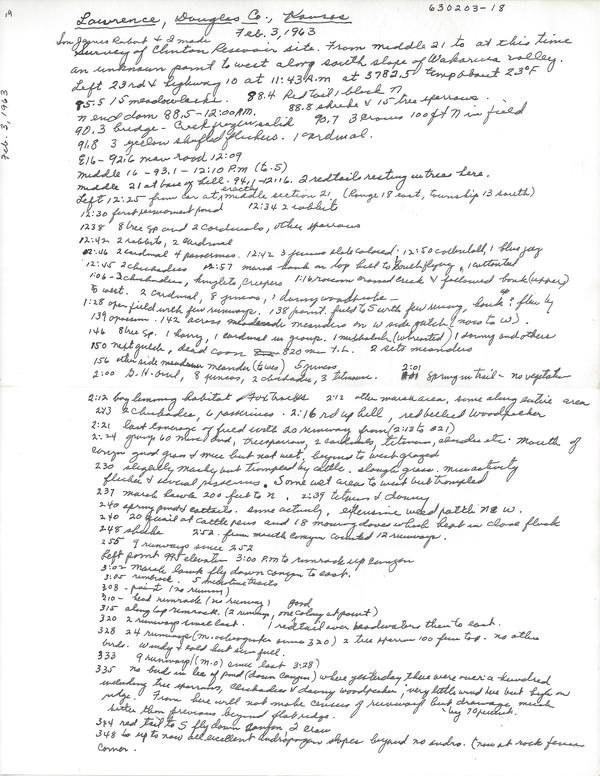 19
Lawrence, Douglas Co., Kansas
630203-18
Feb. 3, 1963
Feb. 3, 1963
Robert & I made
Survey of Clinton Reservoir site. From middle 21 to at this time
an unknown point to west along south slope of Wakarusa valley.
Left 23rd & highway 10 at 11:43 A.M at 3782.5 temp about 23°F
85.5 15 meadowlarks. 88.4 Red tail, black N
N end dam 88.5-12:00 P.M. 88.8 shrike & 15 tree sparrows
90.3 bridge - Creek frozen solid 90.7 3 crows 100 ft N in field
91.8 3 yellow shafted flickers. 1 cardinal.
92.6 new road 12:09
Middle 16 - 93.1 - 12:10 P.M
middle 21 at base of hill. 94.1 - 12:16. 2 redtails resting in trees here.
Left 12:25 from car at exactly middle section 21 (Range 18 east, township 13 south)
12:30 first permanent pond 12:34 2 rabbits
1238 8 tree sp and 2 cardinals, other sparrows
12:42 2 rabbits, 2 cardinal
12:46 2 cardinal 4 passerines. 12:42 3 juncos slate colored. 12:50 1 blue jay
12:55 2 chickadees 12:57 marsh hawk on top hill to south flying, 1 cottontail
1:06 - 2 chickadees, kinglets, creepers 1:16 crossed creek & followed bank (upper)
to west. 2 cardinal, 8 juncos, 1 downy woodpecker -
1:28 open field with few runways. 138 point field to S with few runways, hawk flew by
139 opossum. 142 across meanders on W side gulch (now to W).
146 8 tree sp. 1 hairy, 1 cardinal in group. 1 downy and others
150 next gulch, dead coon 820 mm T.L. 2 sets meanders
156 other side meander (to W) 5 juncos
2:00 G.H. owl, 8 juncos, 2 chickadees, 3 titmouse. 2:01 Spring in trail - no vegetation
2:12 bog lemming habitat 212 other marsh area, some along entire area
213 2 chickadees, 6 passerines. 2:16 rd up hill, red bellied woodpecker
2:21 last coverage of field with 20 runways from (2:13 to 221)
2:24 group 60 juncos, tree sparrows, 2 cardinals, titmouse, chickadee etc. Mouth of
canyon good grass & mice but not wet, beyond to west grazed
230 slightly marshy but trampled by cattle. slough grass. mice activity
flicker & several passerines. Some wet area to west but trampled
237 marsh hawk 200 feet to N. 2:39 titmouse & downy
240 spring pond & cattails. some activity, extensive weed patch N & W.
240 20 quail at cattle pens and 18 mourning doves which kept in close flock
248 shrike 252. from mouth canyon counted 12 runways.
255 9 runways since 252
left point 995 elevation 3:00 P.M to rimrock up canyon
3:02 Marsh hawk fly down canyon to east.
3:05 rimrock. 5 microtine tracts
308 - point (no runway)
310 - head rimrock (no runway) good
315 along top rimrock. (2 runways, one colony at point)
320 2 runways since last. 1 redtail over headwaters then to east.
328 24 runways (M. ochrogaster since 320) 2 tree sparrow 100 feet top. no other
birds. Windy & cold but sun full.
333 9 runways (M.O) since last 3:28)
335 no birds in lee of pond (down canyon) where yesterday there were over a hundred
including tree sparrows, chickadees & downy woodpecker; very little wind here but high on
ridge. From here will not make census of runways but drainage, much
better than previous beyond flat ridge. by 70 percent.
344 red tail to S fly down canyon, 2 crow
348 to up to now all excellent andropogon slopes beyond no andro. (now at rock fence
corner.